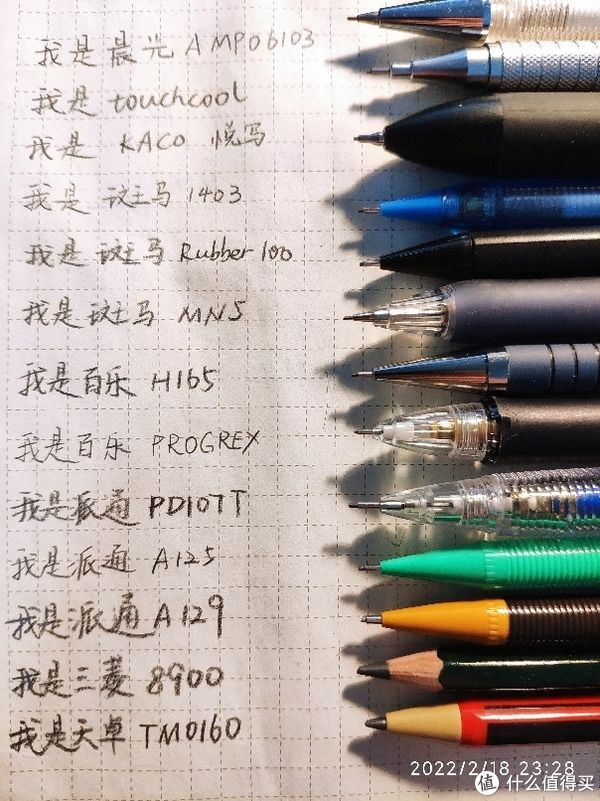 我是晨光 AMP06103
我是 touchcool
我是 KACO 悦写
我是 斑马 1403
我是 斑马 Rubber 100
我是 斑马 MN5
我是百乐 H165
我是百乐 PROGREX
我是派通 PD107T
我是派通 A125
我是派通 A129
我是三菱 8900
我是天卓 TM0160
2022/2/18 23:28
值 什么值得买